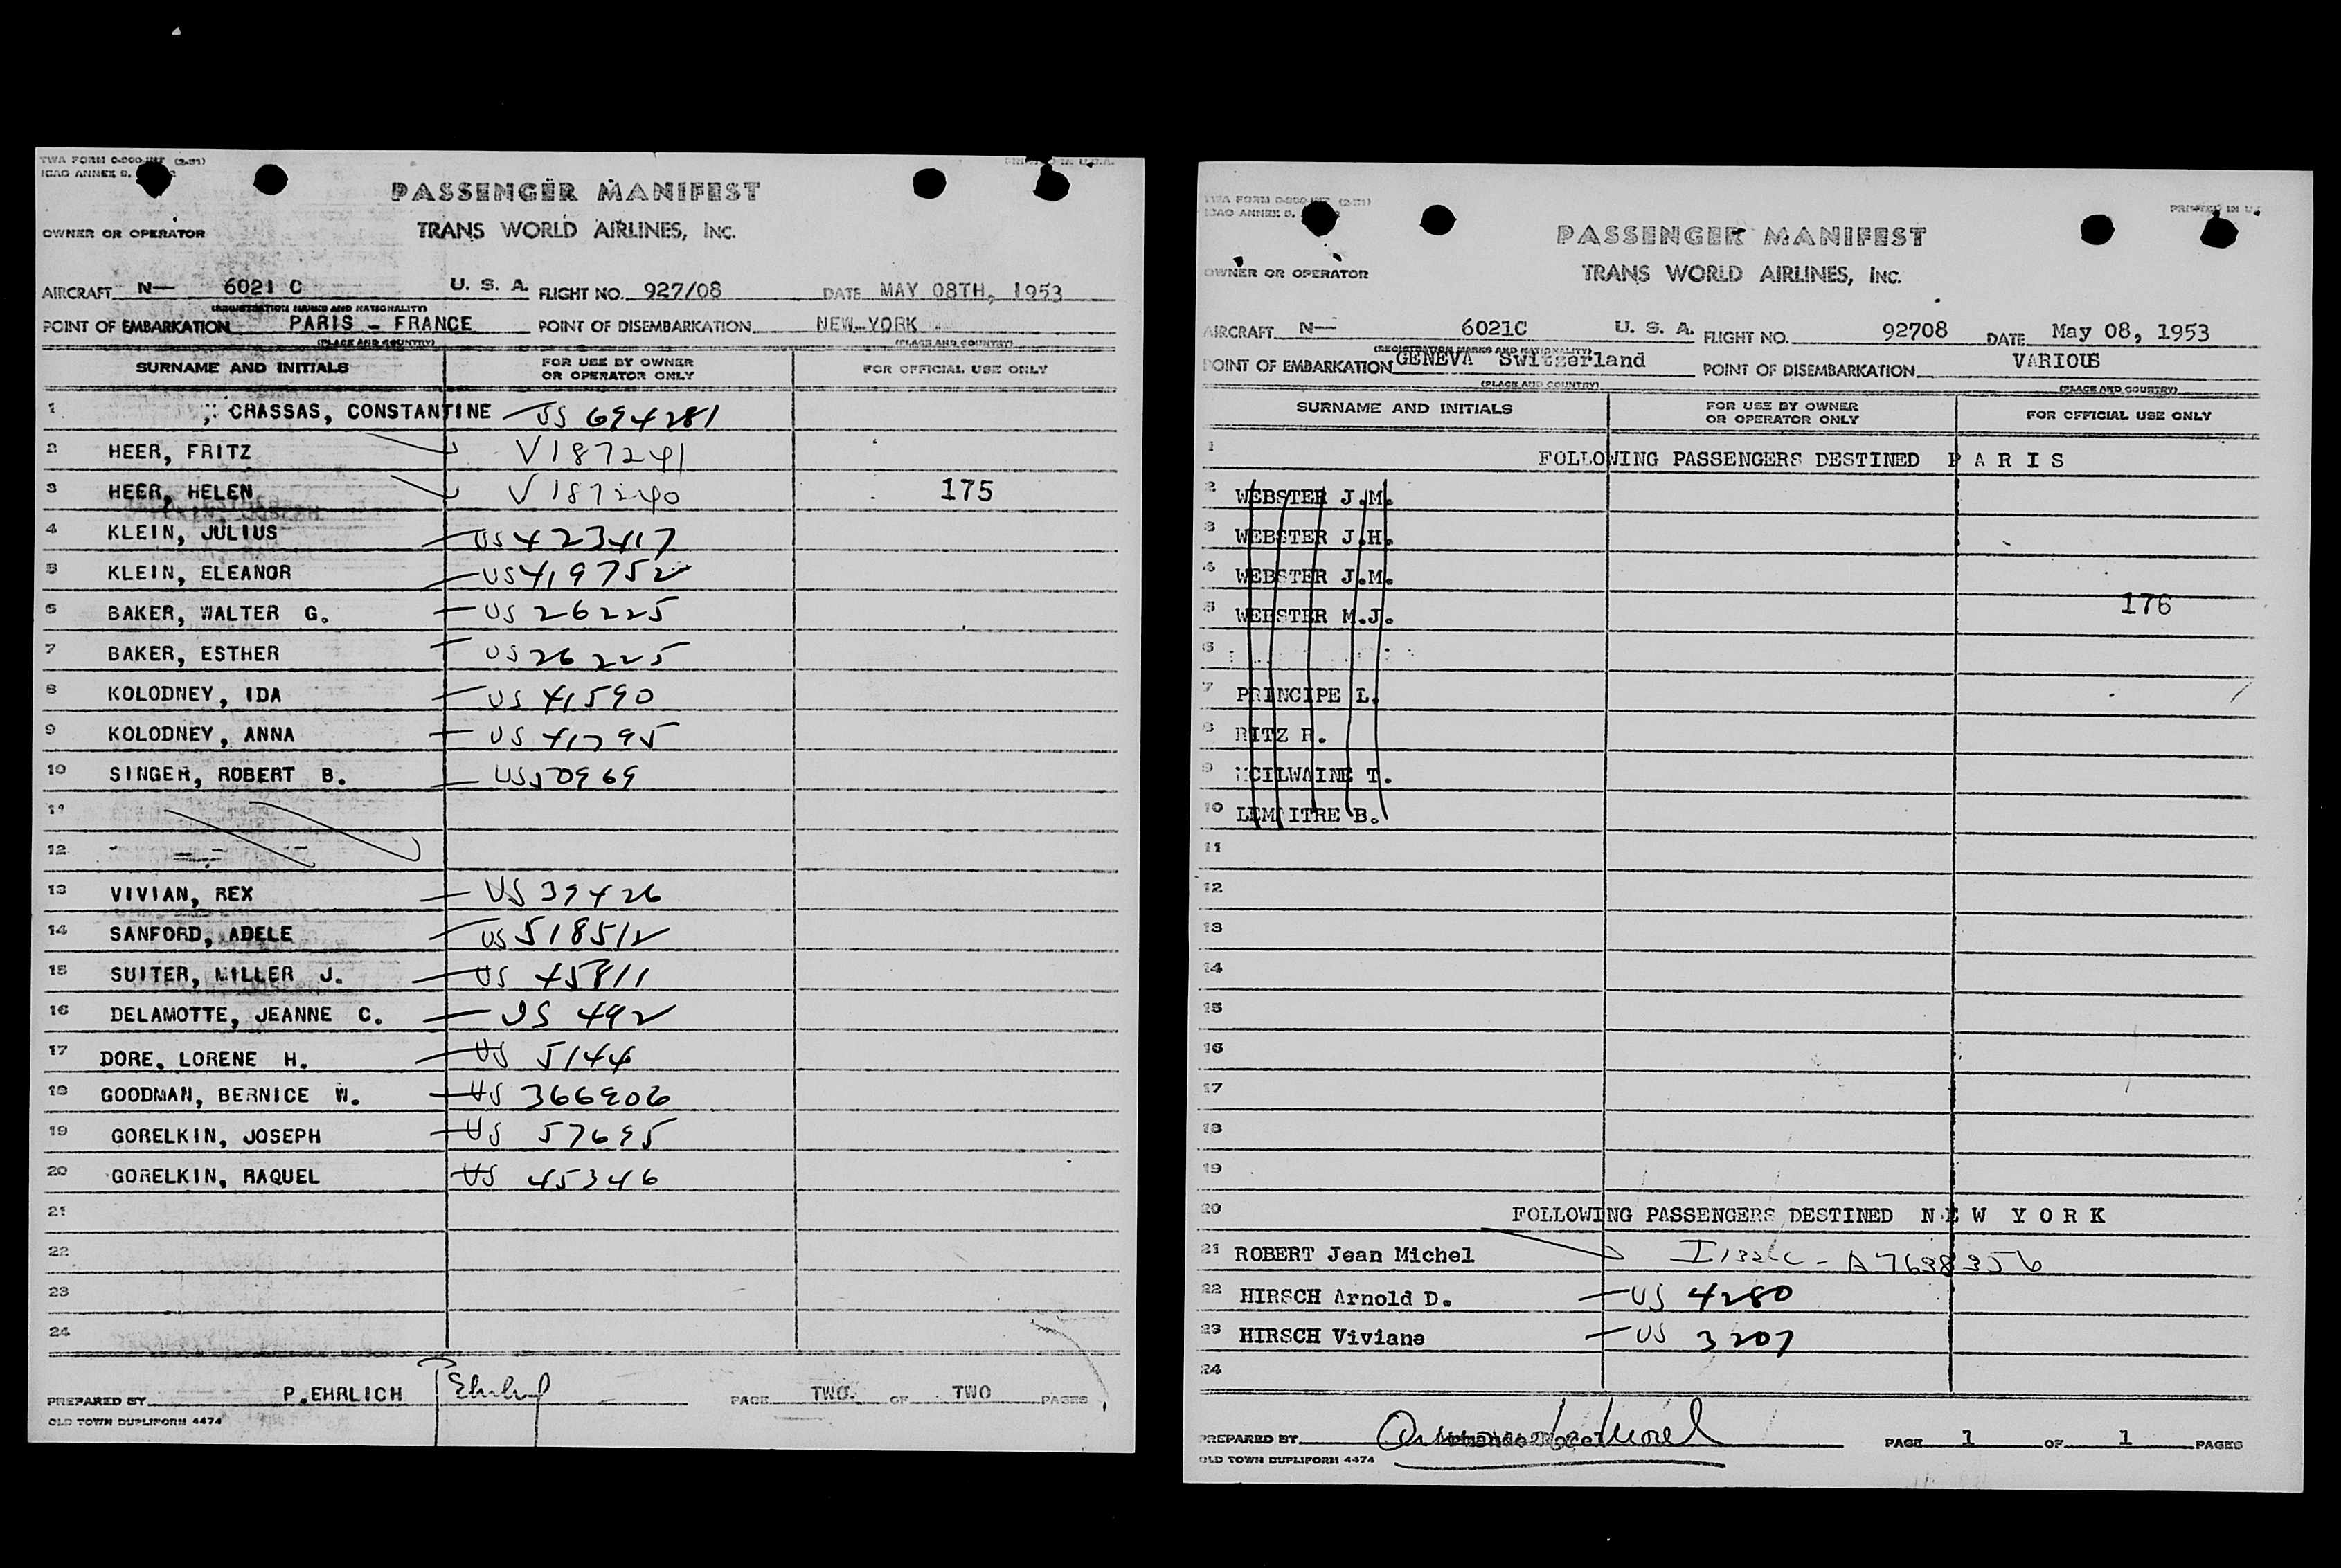 TWA FORM
ICAO ANNEX 9,
PASSENGER MANIFEST
OWNER OR OPERATOR
TRANS WORLD AIRLINES, INC.
AIRCRAFT N— 6021 C U. S. A. FLIGHT NO. 927/08 DATE MAY 08TH, 1953
(REGISTRATION MARKS AND NATIONALITY)
POINT OF EMBARKATION PARIS - FRANCE POINT OF DISEMBARKATION NEW-YORK
(PLACE AND COUNTRY) (PLACE AND COUNTRY)
SURNAME AND INITIALS FOR USE BY OWNER OR OPERATOR ONLY FOR OFFICIAL USE ONLY
1 CRASSAS, CONSTANTINE US 694281
2 HEER, FRITZ V187241
3 HEER, HELEN V187240 175
4 KLEIN, JULIUS US 423417
5 KLEIN, ELEANOR US 419752
6 BAKER, WALTER G. US 26225
7 BAKER, ESTHER US 26225
8 KOLODNEY, IDA US 41590
9 KOLODNEY, ANNA US 41795
10 SINGER, ROBERT B. US 50969
11
12
13 VIVIAN, REX US 39426
14 SANFORD, ADELE US 518512
15 SUITER, MILLER J. US 45811
16 DELAMOTTE, JEANNE C. US 492
17 DORE, LORENE H. US 5144
18 GOODMAN, BERNICE W. US 366906
19 GORELKIN, JOSEPH US 57695
20 GORELKIN, RAQUEL US 45346
21
22
23
24
PREPARED BY P.EHRLICH PEhrlich PAGE TWO. OF TWO PAGES
OLD TOWN DUPLIFORM 4474
TWA FORM
ICAO ANNEX 9,
PRINTED IN U.
PASSENGER MANIFEST
OWNER OR OPERATOR
TRANS WORLD AIRLINES, INC.
AIRCRAFT N— 6021C U. S. A. FLIGHT NO. 92708 DATE May 08, 1953
(REGISTRATION MARKS AND NATIONALITY)
POINT OF EMBARKATION GENEVA Switzerland POINT OF DISEMBARKATION VARIOUS
(PLACE AND COUNTRY) (PLACE AND COUNTRY)
SURNAME AND INITIALS FOR USE BY OWNER OR OPERATOR ONLY FOR OFFICIAL USE ONLY
1 FOLLOWING PASSENGERS DESTINED P A R I S
2 WEBSTER J.M.
3 WEBSTER J.H.
4 WEBSTER J.M.
5 WEBSTER M.J. 176
6
7 PRINCIPE L.
8 RITZ R.
9 MCILWAINE T.
10 LEMAITRE B.
11
12
13
14
15
16
17
18
19
20 FOLLOWING PASSENGERS DESTINED N E W Y O R K
21 ROBERT Jean Michel A7698356
22 HIRSCH Arnold D. US 4280
23 HIRSCH Viviane US 3207
24
PREPARED BY PAGE 1 OF 1 PAGES
OLD TOWN DUPLIFORM 4474